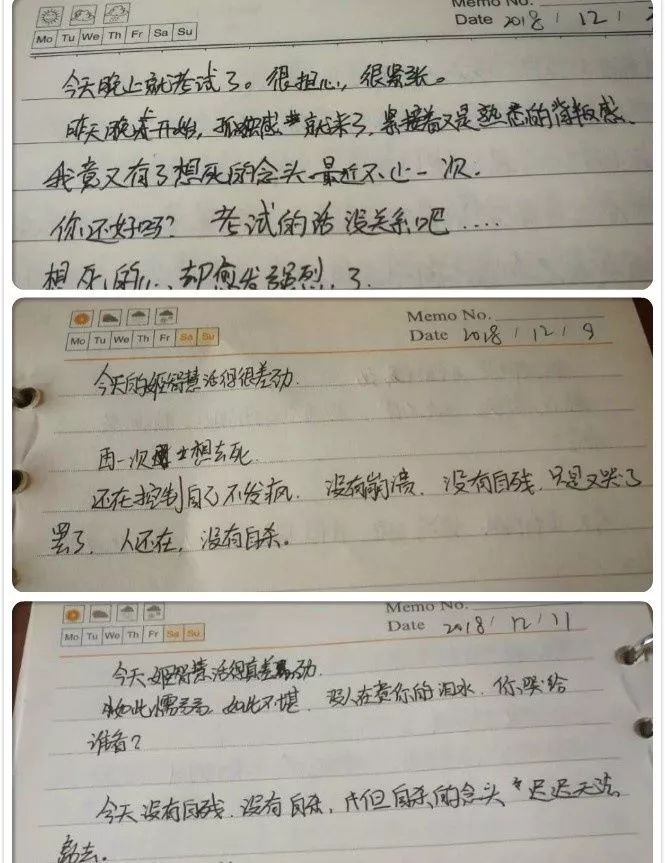 Mo Tu We Th Fr Sa Su
Memo No.
Date 2018 / 12 /
今天晚上就考试了。很担心，很紧张。
昨天晚读开始，孤独感就来了，紧接着又是熟悉的背叛感，
我竟又有了想死的念头，最近不止一次.
你还好吗？ 考试的话没关系吧....
想死的心，却愈发强烈了
Memo No.
Mo Tu We Th Fr Sa Su
Date 2018 / 12 / 9
今天的姬智慧活得很差劲.
再一次想去死.
还在控制自己不发疯. 没有崩溃. 没有自残. 只是又哭了
罢了. 人还在, 没有自杀。
Memo No.
Mo Tu We Th Fr Sa Su
Date 2018 / 12 / 11
今天姬智慧活得真差劲.
如此懦弱, 如此不堪. 没人在意你的泪水. 你哭给
谁看？
今天没有自残. 没有自杀, 但自杀的念头迟迟无法
离去.